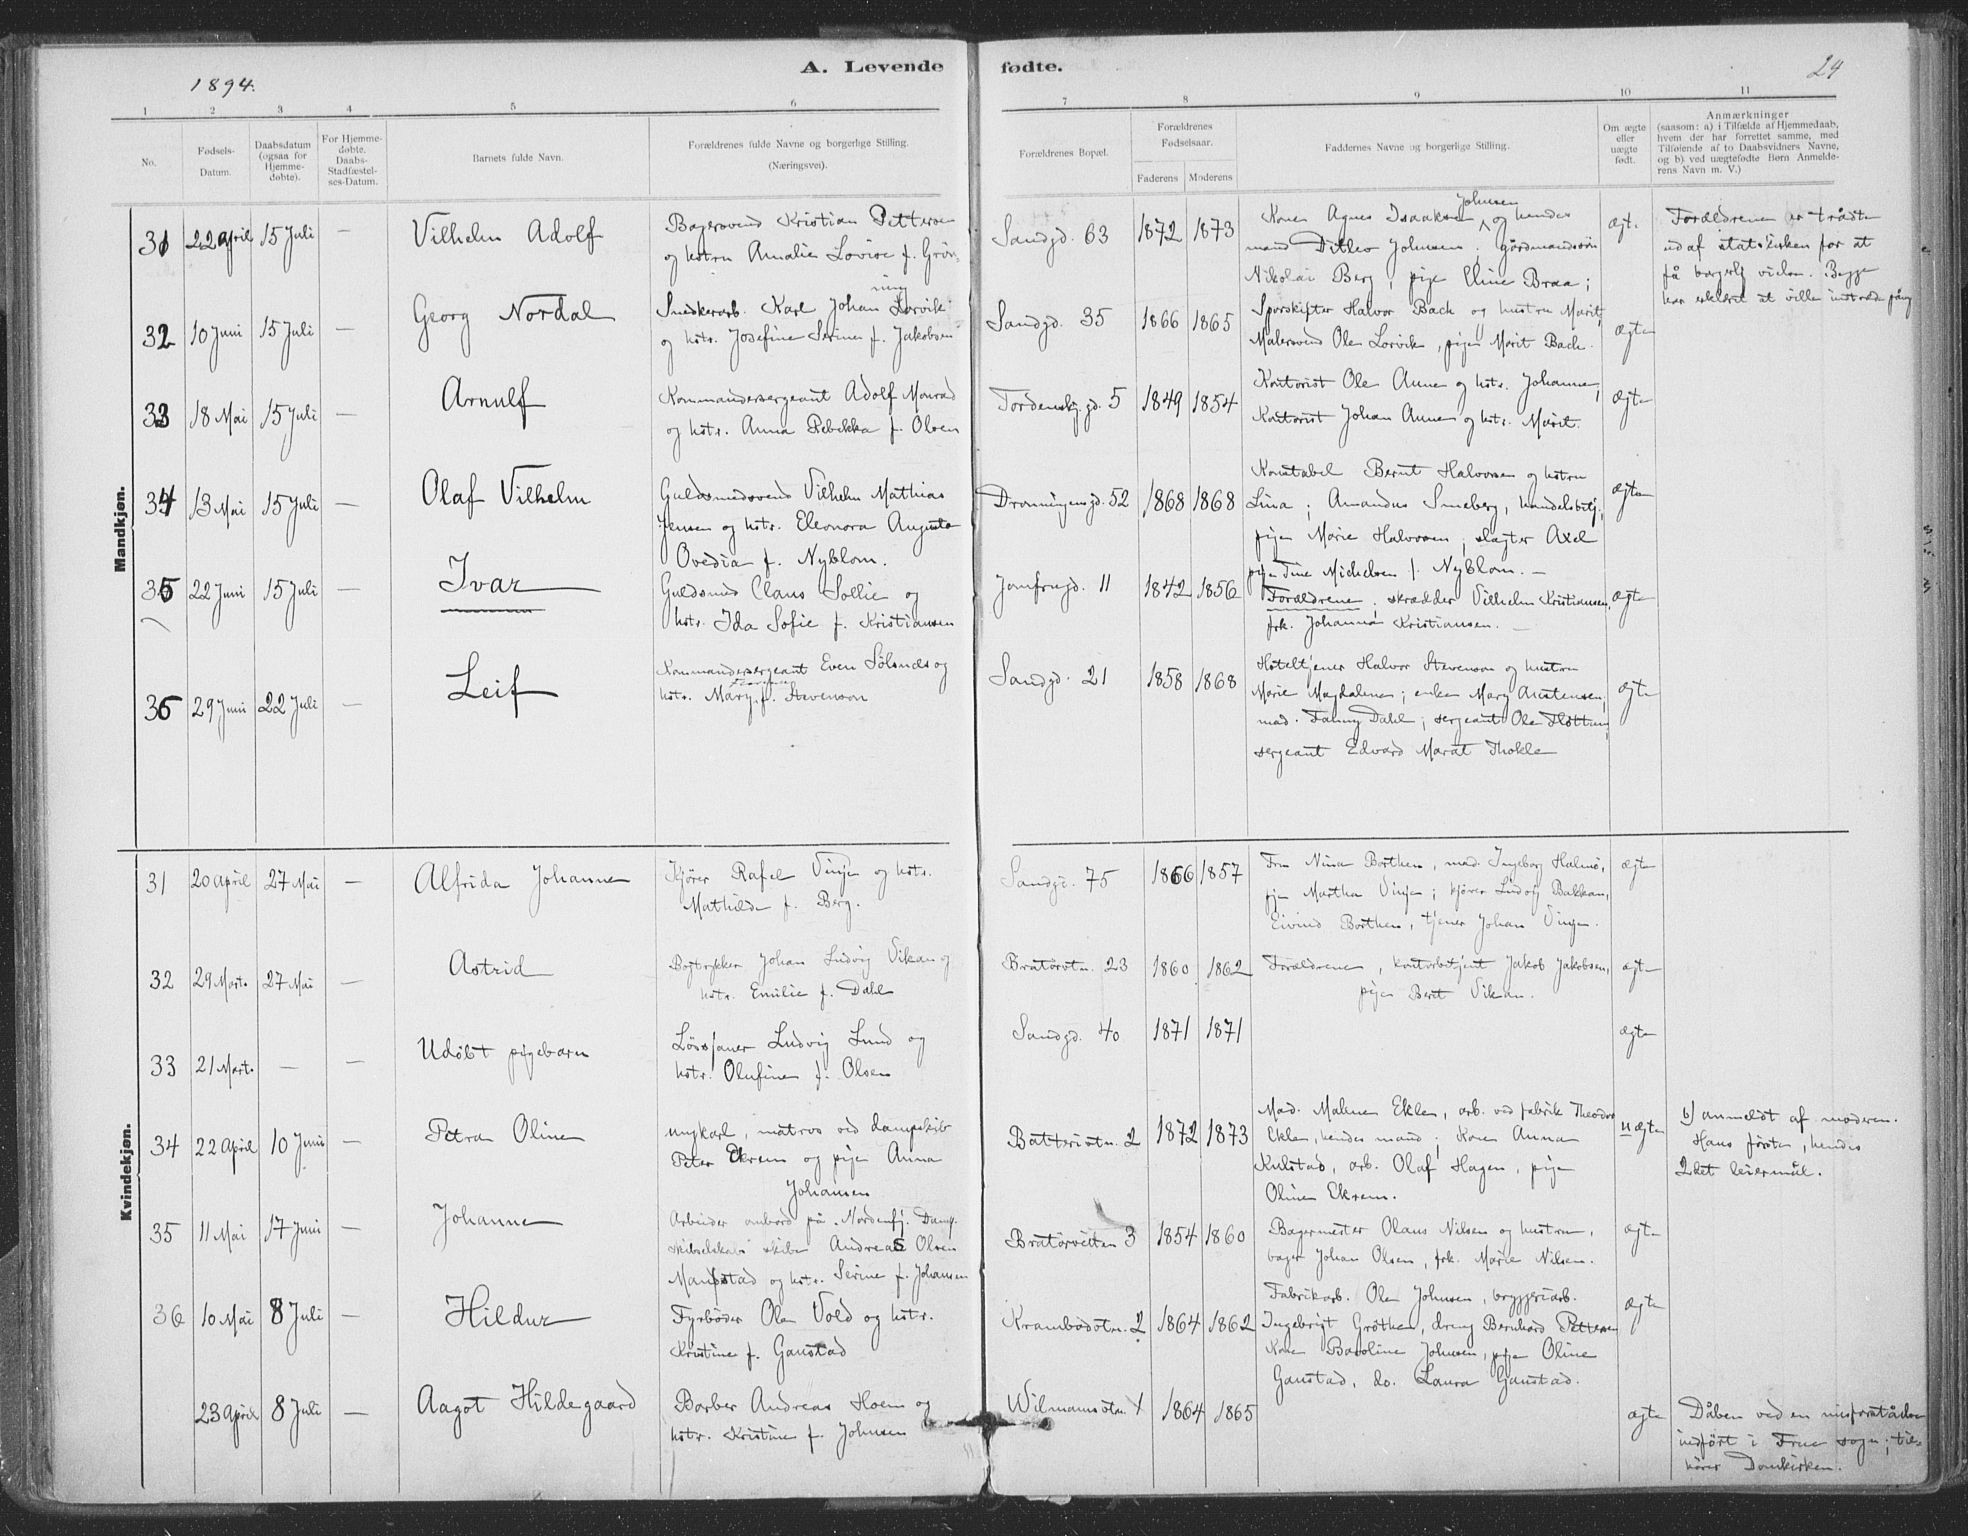 1894.
A. Levende fødte.
24
1 2 3 4 5 6 7 8 9 10 11
No.
Fødsels-Datum.
Daabsdatum (ogsaa for Hjemme-døbte).
For Hjemme-døbte. Daabs-Stadfæstel-ses-Datum.
Barnets fulde Navn.
Forældrenes fulde Navne og borgerlige Stilling.
(Næringsvei).
Forældrenes Bopæl.
Forældrenes Fødselsaar.
Faderens Moderens
Faddernes Navne og borgerlige Stilling.
Om ægte eller uægte født.
Anmærkninger
(saasom: a) i Tilfælde af Hjemmedaab,
hvem der har forrettet samme, med
Tilføiende af to Daabsvidners Navne,
og b) ved uægtefødte Børn Anmelde-
rens Navn m. V.)
Mandkjøn.
31 22 April 15 Juli — Vilhelm Adolf
Bagersvend Kristian Pettersen
og hstru Amalie Lovise f. Grön-
ning
Sandgd. 63 1872 1873
Kone Agnes Isaaksen Johnsen og hendes
mand Ditlev Johnsen; gårdmandssön
Nikolai Berg, pige Eline Braa;
ægt.
Forældrene er trådte
ud af statskirken for at
få borgerlig vielse. Begge
har erklæret at ville indtræde påny
32 10 Juni 15 Juli — Georg Nordal
Snedkerarb. Karl Johan Lorvik
og hstr. Josefine Serine f. Jakobsen
Sandgd. 35 1866 1865
Sporskifter Halvor Bach og hustru Marit,
Malersvend Ole Lorvik, pigen Marit Bach.
ægte
33 18 Mai 15 Juli — Arnulf
Kommandersergeant Adolf Monrad
og hstr. Anna Rebekka f. Olsen
Tordenskj.gd. 5 1849 1854
Kontorist Ole Aune og hstr. Johanne,
Kontorist Johan Aune og hstr. Marit.
ægte
34 13 Mai 15 Juli — Olaf Vilhelm
Guldsmedsvend Vilhelm Mathias
Jensen og hstr. Eleonora Augusta
Ovedia f. Nyblom.
Dronningensgd. 52 1868 1868
Konstabel Bernt Halvorsen og hstru
Lina; Amandus Smeberg, handelsbetj.,
pigen Marie Halvorsen; slagter Axel
Nyblom. —
pige Tine Michelsen
ægte
35 22 Juni 15 Juli — Ivar
Guldsmed Claus Sollie og
hstr. Ida Sofie f. Kristiansen
Jomfrugd. 11 1842 1856
Forældrene; skrædder Vilhelm Kristiansen,
frk. Johanna Kristiansen. —
ægte
36 29 Juni 22 Juli — Leif
Kommandersergeant Even Sölsnes og
hstr. Mary f. Stevenson
Sandgd. 21 1858 1868
Hoteltjener Halvor Stevenson og hustru
Marie Magdalena; enken Mary Arestensen,
mad. Fanny Dahl; sergeant Ole
sergeant Edvard Marat Thokle
ægte
Kvindekjøn.
31 20 April 27 Mai — Alfrida Johanne
Kjörer Rafel Vingen og hstr.
Mathilde f. Berg.
Sandgd. 75 1866 1857
Fru Nina Borthen, mad. Ingeborg Halmö,
pige Martha Vingen; kjörer Ludvig Bakkan,
Eivind Borthen, tjener Johan Vingen.
ægte
32 29 Marts 27 Mai — Astrid
Bogtrykker Johan Ludvig Vikan og
hstr. Emilie f. Dahl
Bratörvtn. 23 1860 1862
Forældrene, kontorbetjent Jakob Jakobsen,
pigen Berit Vikan.
ægte
33 21 Marts — — Udöbt pigebarn
Lösssjauer Ludvig Lund og
hstr. Olufine f. Olsen
Sandgd. 40 1871 1871
ægte
34 22 April 10 Juni — Petra Oline
ungkarl, matros ved dampskib
Peter Ekrem og pige Anna
Johansen
Batteristn. 2 1872 1873
Mad. Malene Eklen, arb. ved fabrik Theodor
Eklen, hendes mand; Kone Anna
Kulstad, arb. Olaf Hagen, pige
Oline Ekrem.
uægte
b) anmeldt af moderen.
Hans förste, hendes
2det leiermål.
35 11 Mai 17 Juni — Johanne
Arbeider ombord på "Nordenfj. Damp-
skibselskabs" skibe Andreas Olsen
og hstr. Serine f. Johansen
Bratörveiten 3 1854 1860
Bagermester Olaus Nilsen og hustru,
bager Johan Olsen, frk. Marie Nilsen.
ægte
36 10 Mai 8 Juli — Hildur
Fyrböder Ole Vold og hstr.
Kristine f. Ganstad
Krambodstn. 2 1864 1862
Fabrikarb. Ole Johnsen, bryggeriarb.
Ingebrigt Gröthen, dreng Bernhard Pettersen
Kone Baroline Johnsen, pige Oline
Ganstad, do. Laura Ganstad.
ægte
23 April 8 Juli — Aagot Hildegaard
Barber Andreas Hoem og
hstr. Kristine f. Johnsen
Wilmannsstn. 1864 1865
ægte
Dåben ved en misforståelse
indfört i Frue sogn; til-
hörer Domkirken.